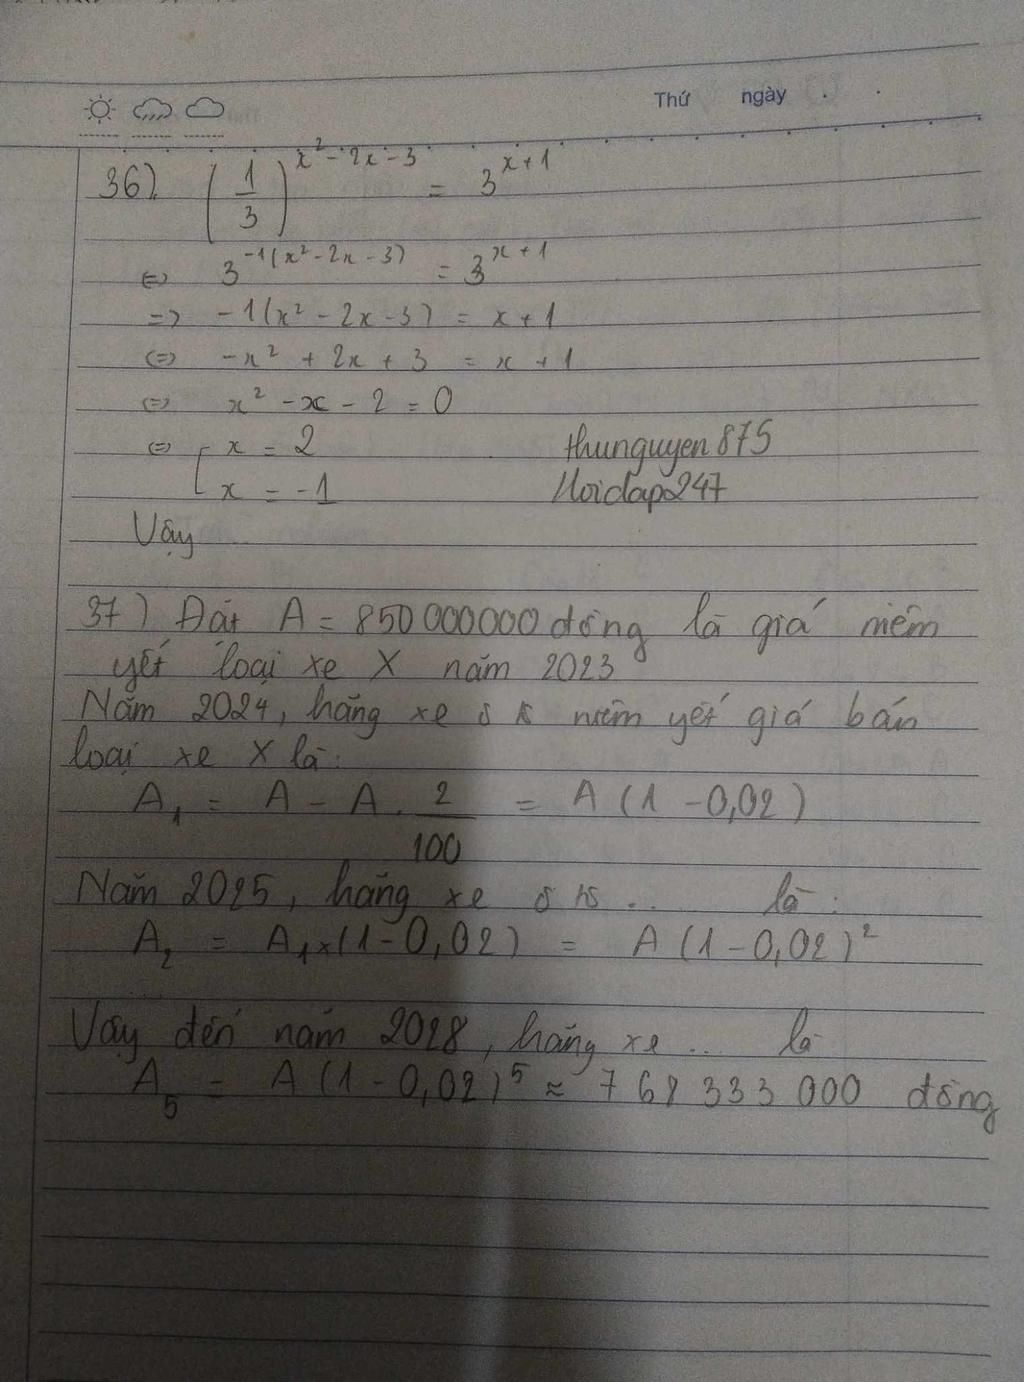 Thứ ngày
36) (1/3)^(x²-2x-3) = 3^(x+1)
⇔ 3^(-1(x²-2x-3)) = 3^(x+1)
=> -1(x² - 2x - 3) = x + 1
⇔ -x² + 2x + 3 = x + 1
⇔ x² - x - 2 = 0
⇔ [ x = 2
x = -1
thunguyen875
Hoidap247
Vậy
37) Đặt A = 850 000000 đồng là giá niêm
yết loại xe X năm 2023
Năm 2024, hãng xe ô tô niêm yết giá bán
loại xe X là:
A₁ = A - A . 2/100 = A (1 - 0,02)
Năm 2025, hãng xe ô tô ... là:
A₂ = A₁×(1 - 0,02) = A (1 - 0,02)²
Vậy đến năm 2028, hãng xe ... là
A₅ = A (1 - 0,02)⁵ ≈ 768 333 000 đồng